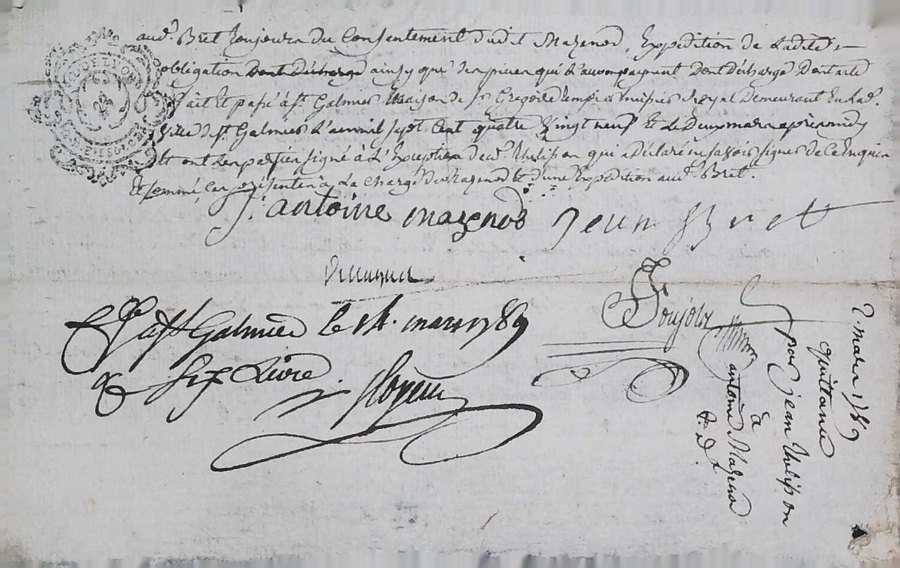 aud. Bret toujours du Consentement dudit Mazenod, Expédition de Ladite
obligation Dont Décharge ainsy que des pieces qui L'accompagnent Dont décharge Dont acte
fait et passé à St. Galmier Maison de Sr Gregoire huissier Royal Demeurant en Lad.
Ville de St. Galmier L'an mil sept Cent quatre vingt neuf et Le Deux mars après midy
Et ont Les parties signé à L'Exception de qui a Déclaré ne savoir signer de Ce Enquis
et sommé à La Charge de Mazenod d'une Expedition aud. Bret.
antoine mazenod jean Bret
Cle à St Galmier le 14. mars 1789
Six Livre.
Poujol
2 mars 1789
quittance
par jean
à
antoine Mazenod